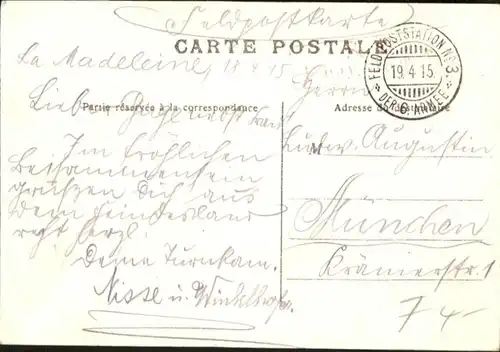 Feldpostkarte
CARTE POSTALE
FELDPOSTSTATION No 3.
19.4.15
* DER 6. ARMEE *
La Madeleine, 18 4 15
Partie réservée à la correspondance
Adresse du destinataire
Lieber
Im fröhlichen
Beisammensein
grüßen Dich aus
dem Feindesland
recht herzl.
Deine Turnkam.
Nisse u. Winkelhofer.
Herrn
Ludw. Augustin
München
Krämerstr. 1